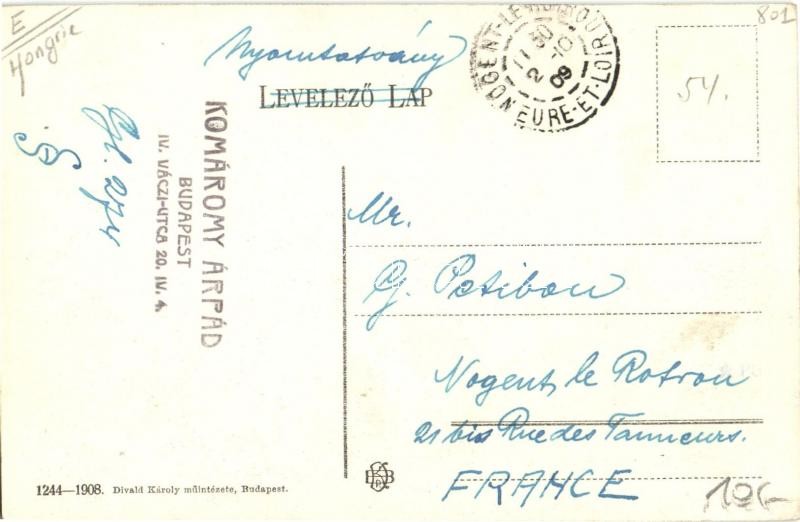 E
Hongrie
801
Nyomtatvány
LEVELEZŐ LAP
NOGENT-LE-ROTROU
11 30
2 -10
09
EURE-ET-LOIR
54.
KOMÁROMY ÁRPÁD
BUDAPEST
IV. VÁCZI-UTCA 20. IV. 4.
Mr.
G. Petibon
Nogent le Rotrou
21 bis Rue des Tanneurs.
FRANCE
1244—1908. Divald Károly műintézete, Budapest.